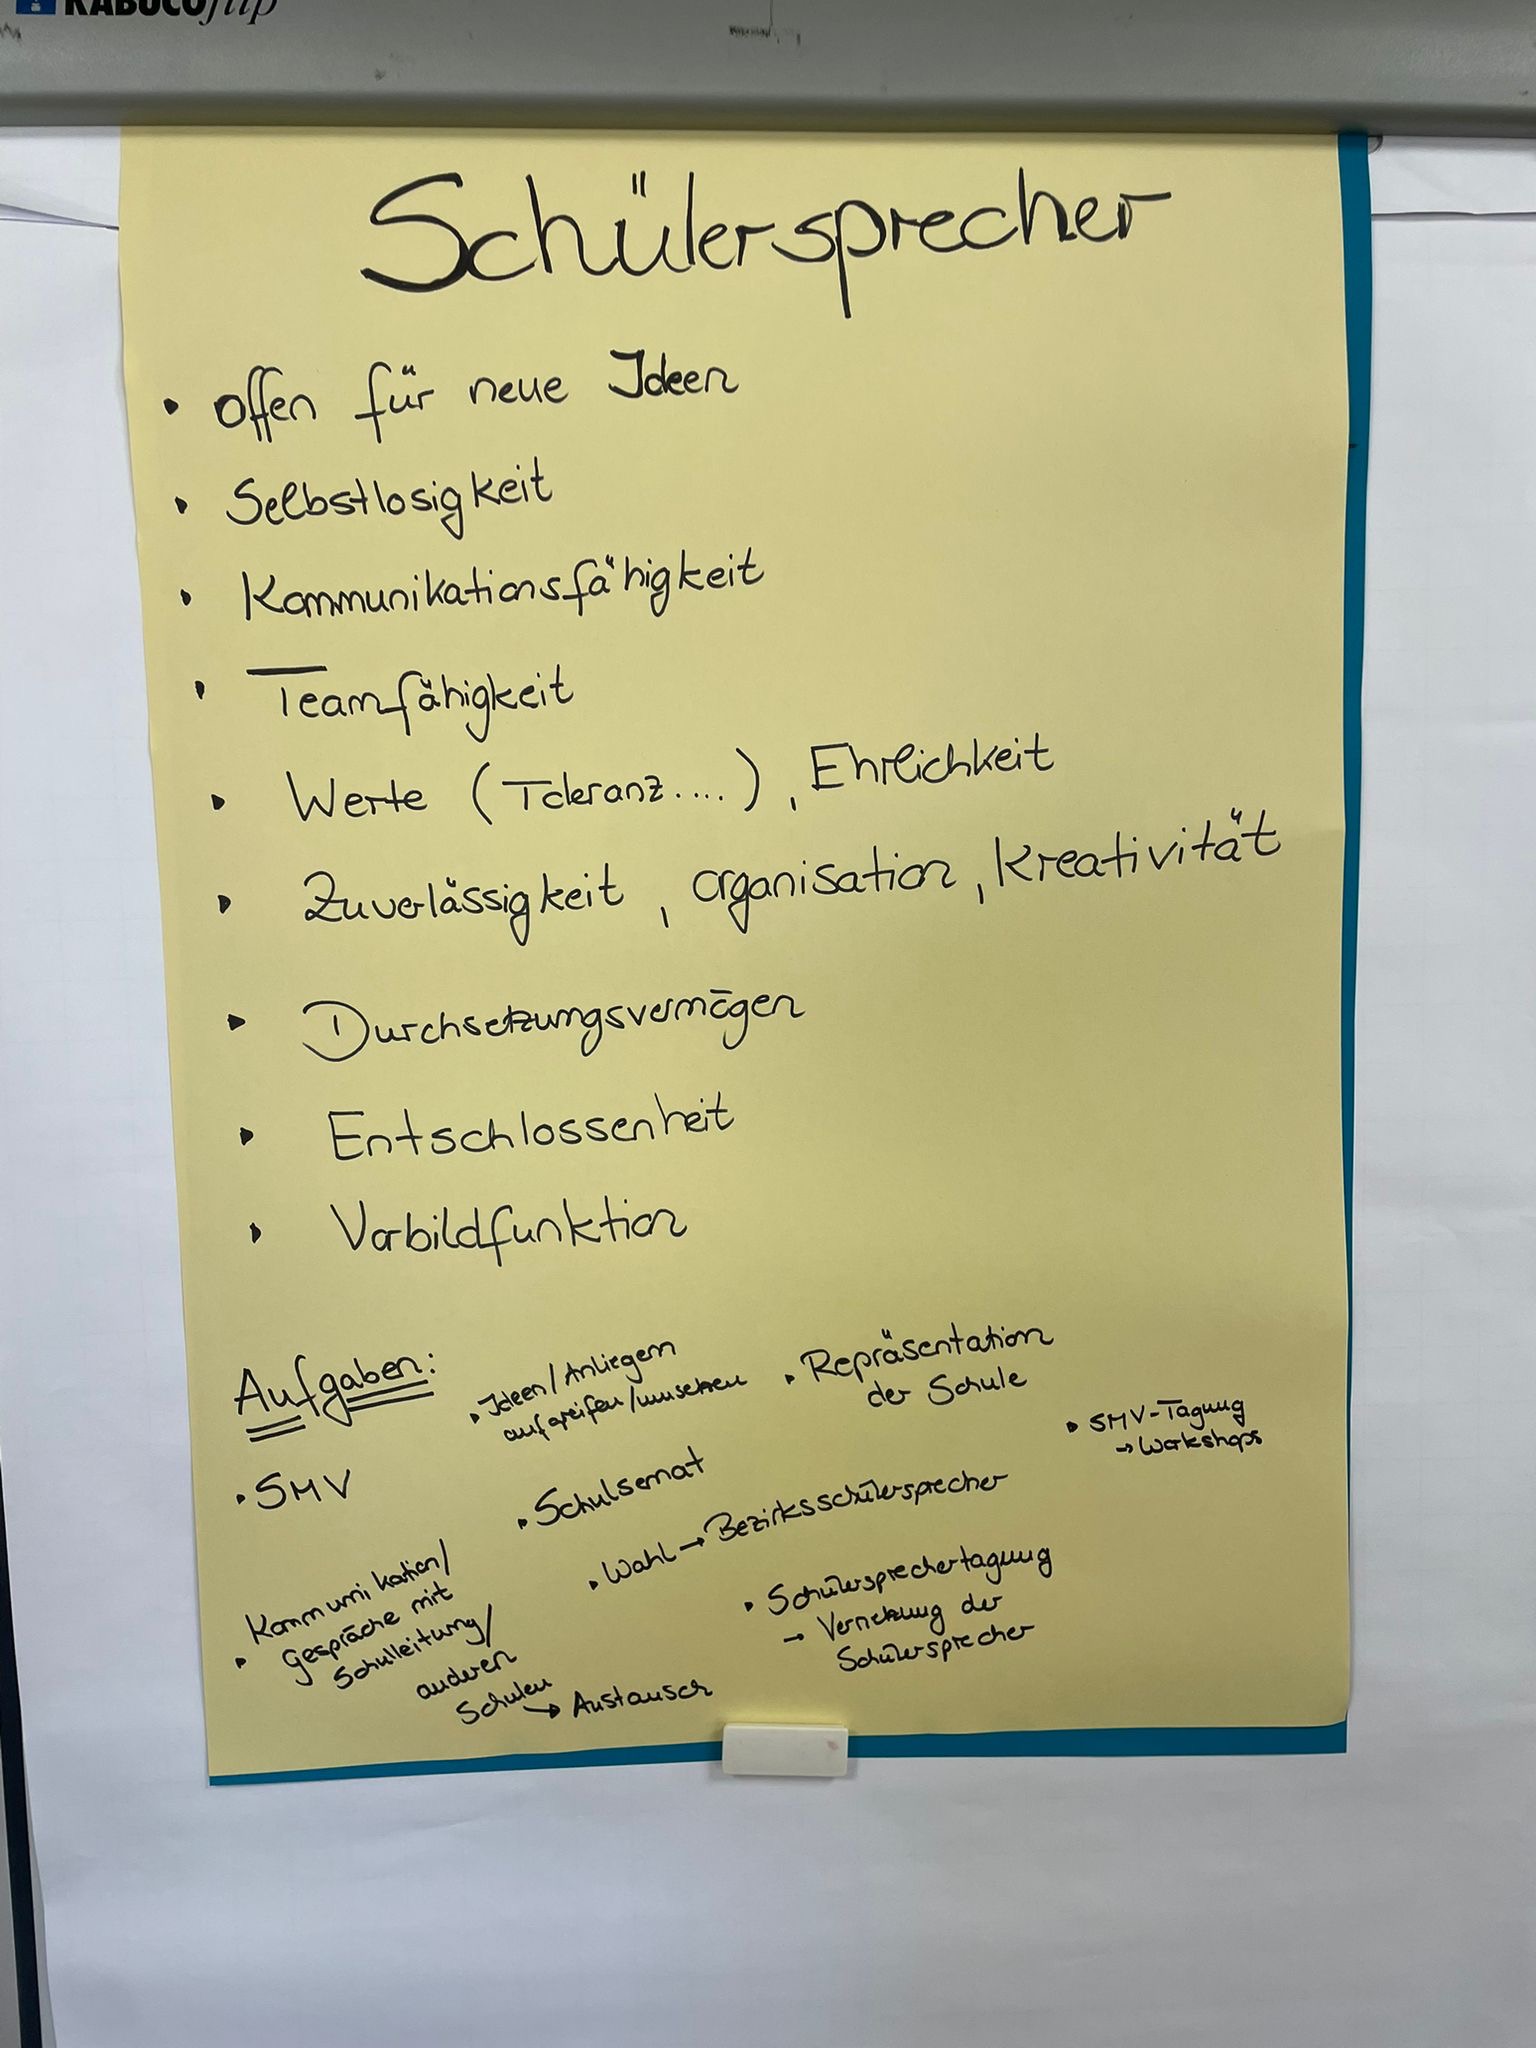 KABUCOflip
Schülersprecher
• offen für neue Ideen
• Selbstlosigkeit
• Kommunikationsfähigkeit
• Teamfähigkeit
• Werte (Toleranz....), Ehrlichkeit
• Zuverlässigkeit, organisation, Kreativität
• Durchsetzungsvermögen
• Entschlossenheit
• Vorbildfunktion
Aufgaben:
• SMV
• Ideen/Anliegen
aufgreifen/umsetzen
• Repräsentation
der Schule
• SMV-Tagung
→ Workshops
• Schulsemat
• Wahl → Bezirksschülersprecher
• Kommunikation/
Gespräche mit
Schulleitung/
anderen
Schulen → Austausch
• Schülersprechertagung
→ Vernetzung der
Schülersprecher